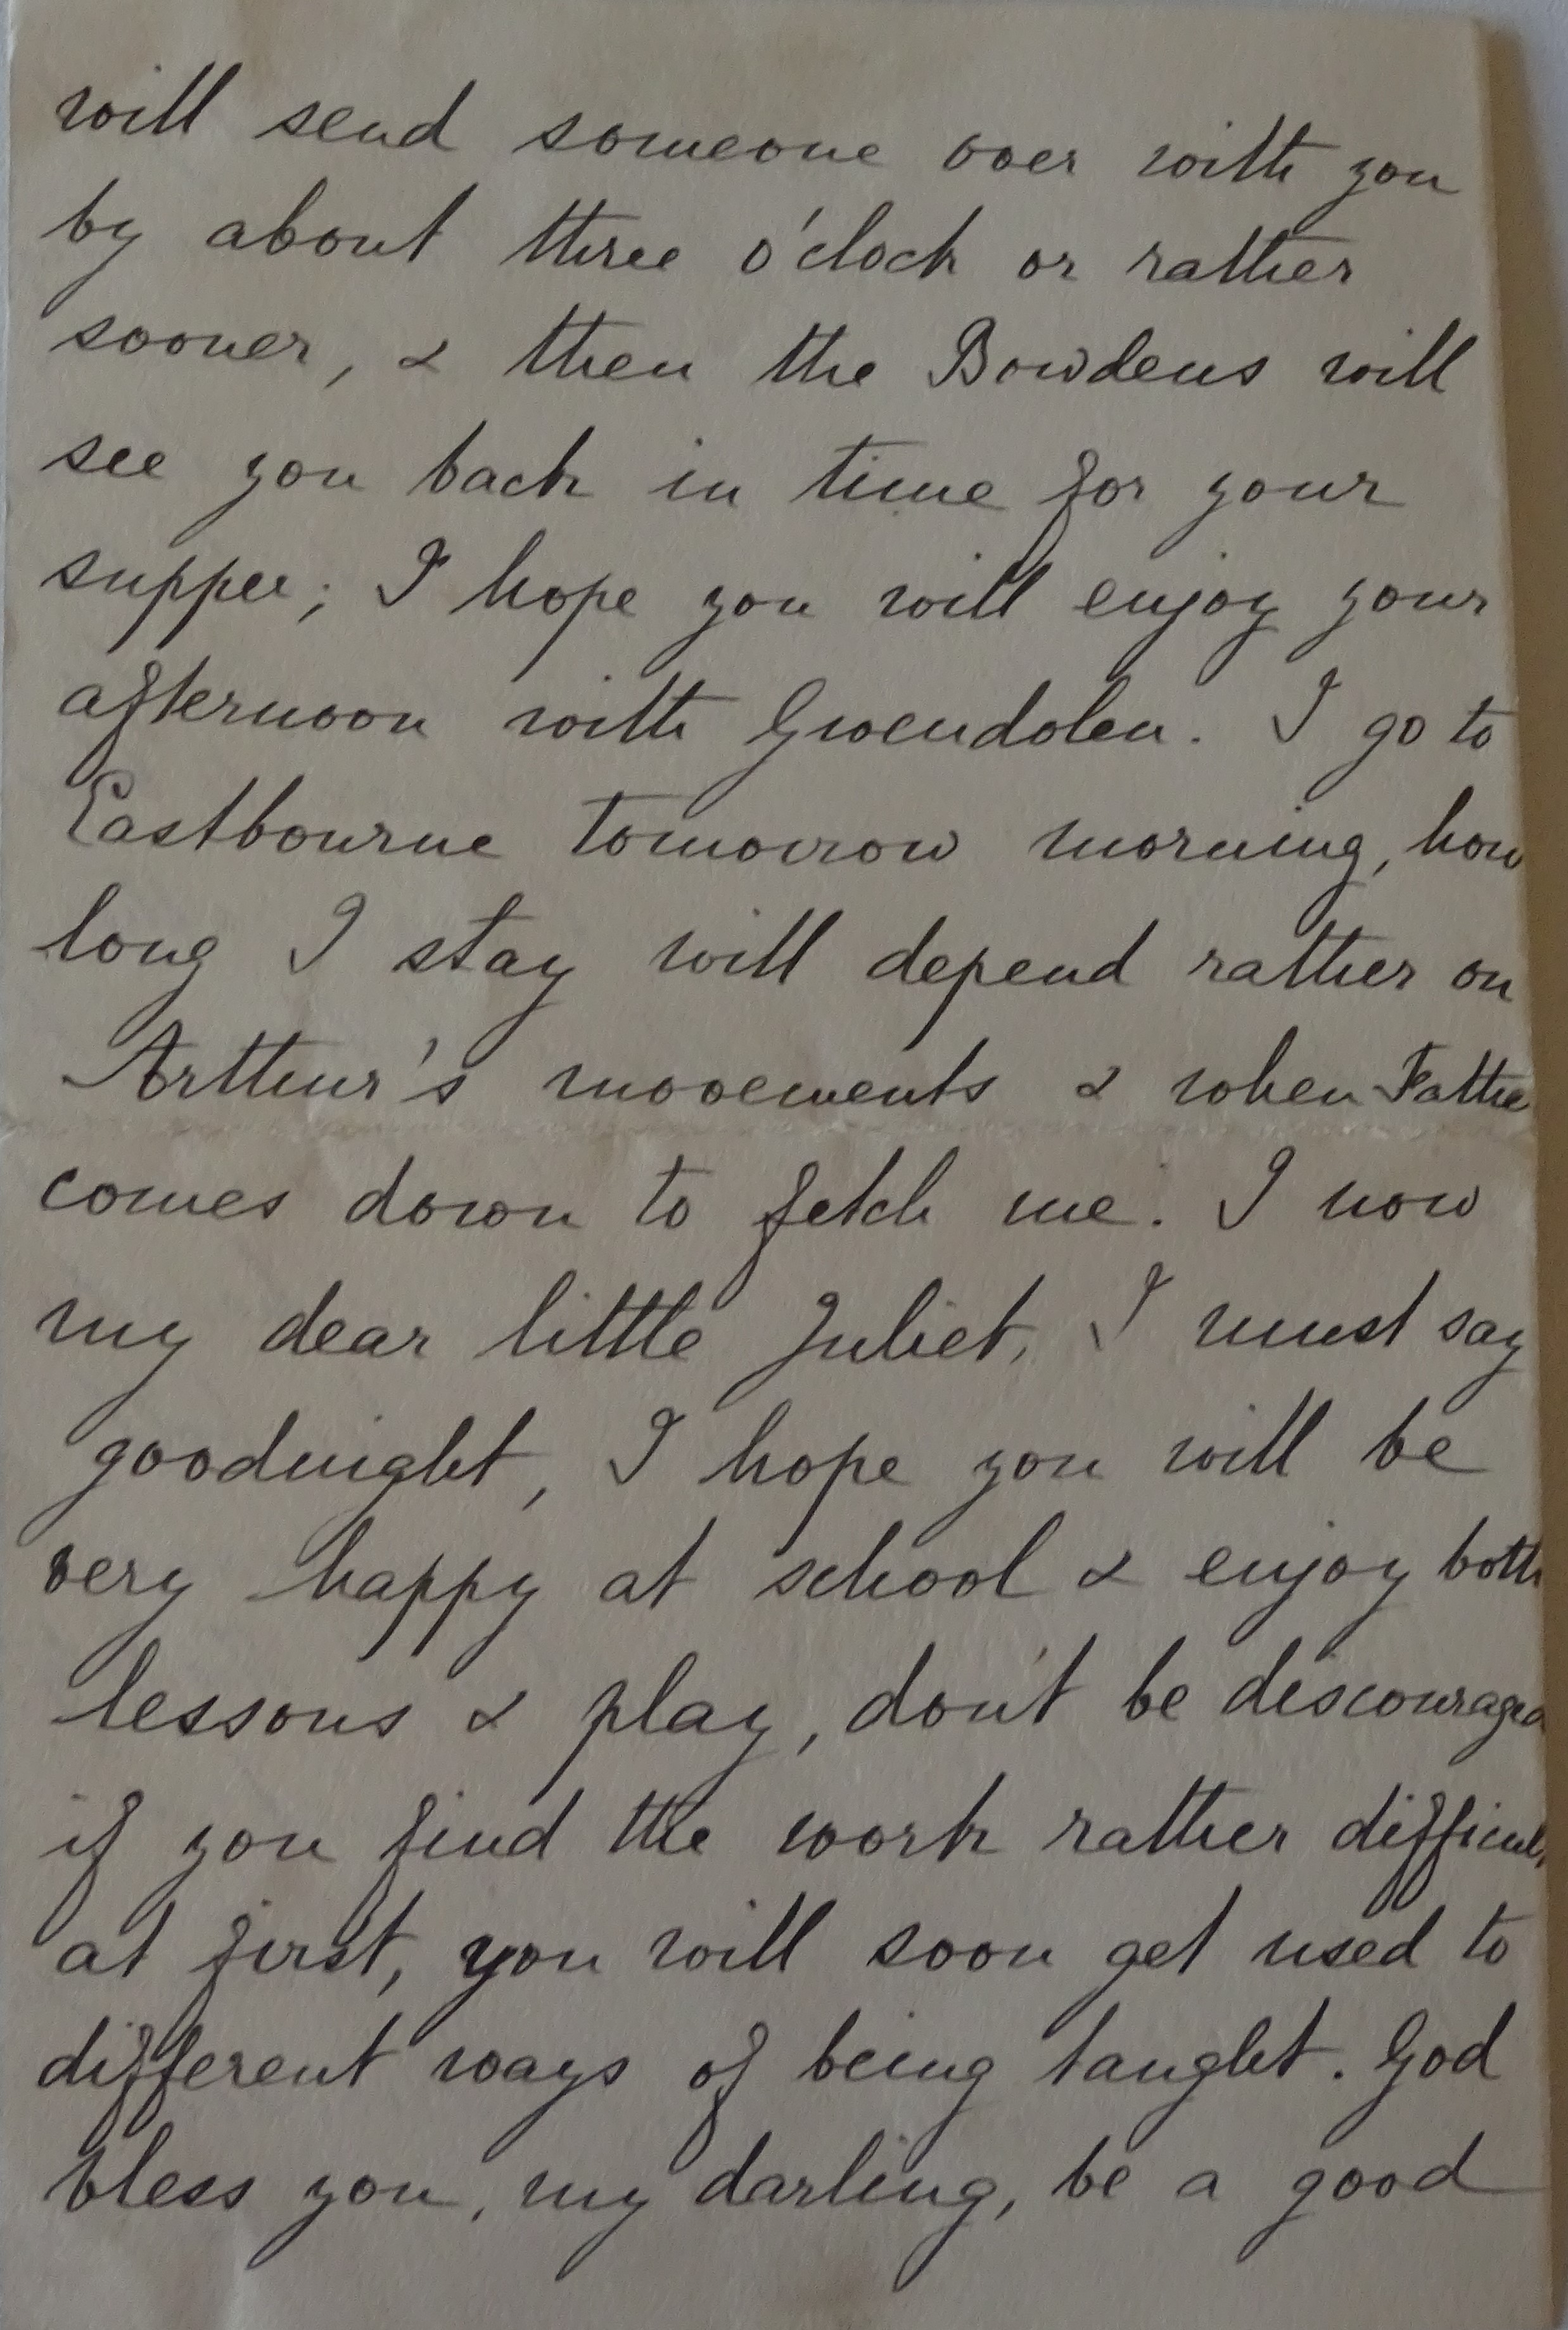 will send someone over with you
by about three o'clock or rather
sooner, & then the Bowdens will
see you back in time for your
supper; I hope you will enjoy your
afternoon with Gwendolen. I go to
Eastbourne tomorrow morning, how
long I stay will depend rather on
Arthur's movements & when Father
comes down to fetch me. I now
my dear little Juliet, I must say
goodnight, I hope you will be
very happy at school & enjoy both
lessons & play, don't be discouraged
if you find the work rather difficult
at first, you will soon get used to
different ways of being taught. God
bless you, my darling, be a good